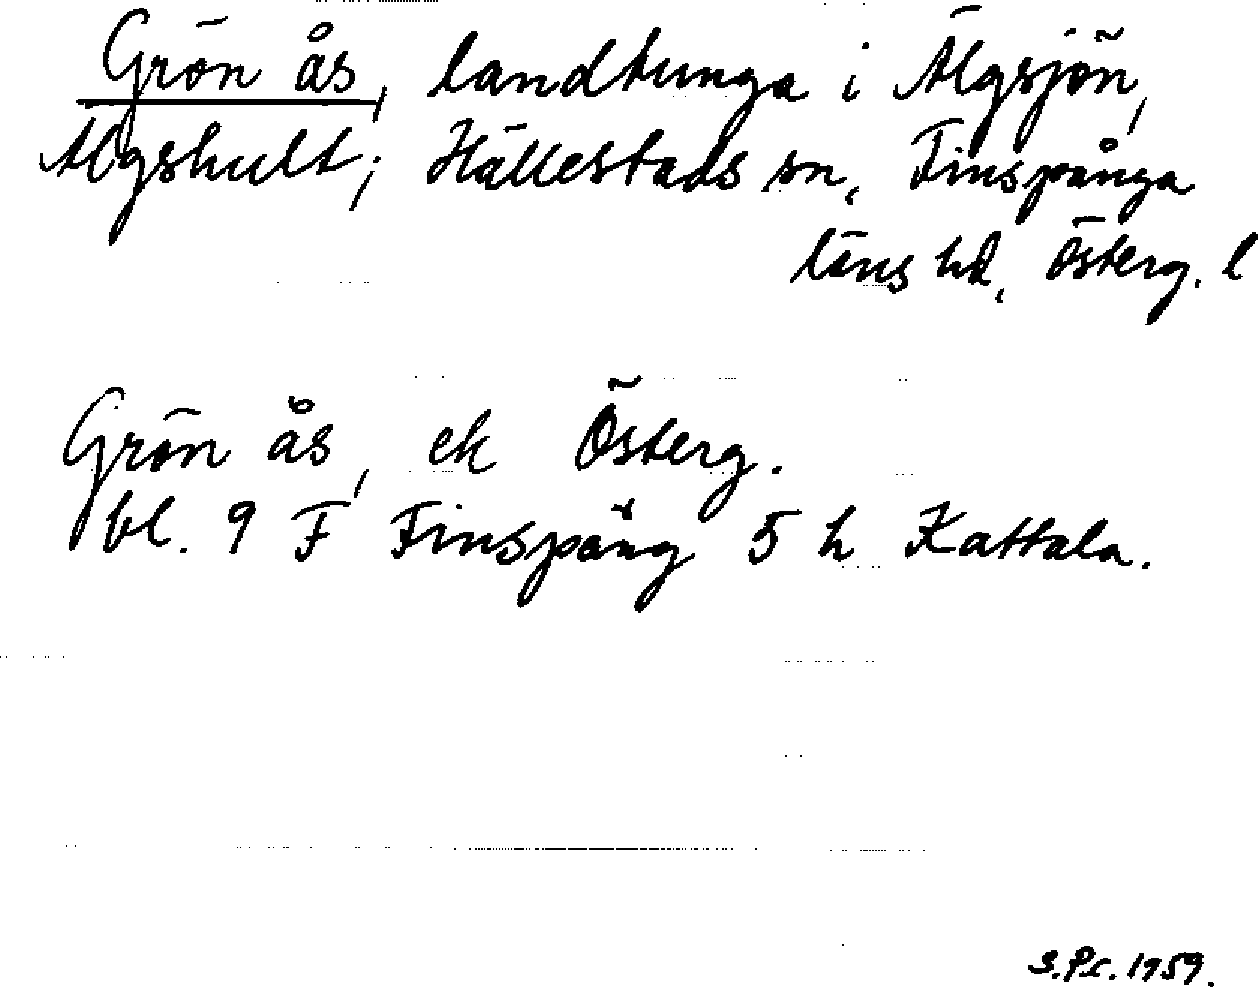 Grön ås, landtunga i Älgsjön,
Älgshult; Hällestads sn, Finspånga
läns hd, Österg. l
Grön ås, ek Österg.
bl. 9 F Finspång 5 h Kattala.
S.P.C. 1959.